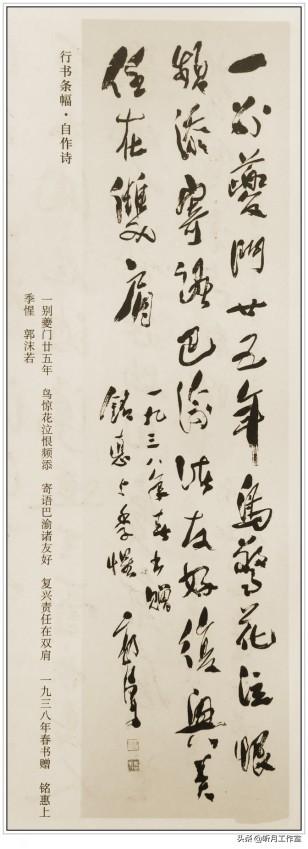 一别夔門廿五年鳥驚花泣恨
頻添寄語巴渝諸友好復興責
任在雙肩
一九三八年春書贈
銘惠上季惺 郭沫若
行书条幅·自作诗
一别夔门廿五年 鸟惊花泣恨频添 寄语巴渝诸友好 复兴责任在双肩 一九三八年春书赠 铭惠上
季惺 郭沫若
头条 @听月工作室